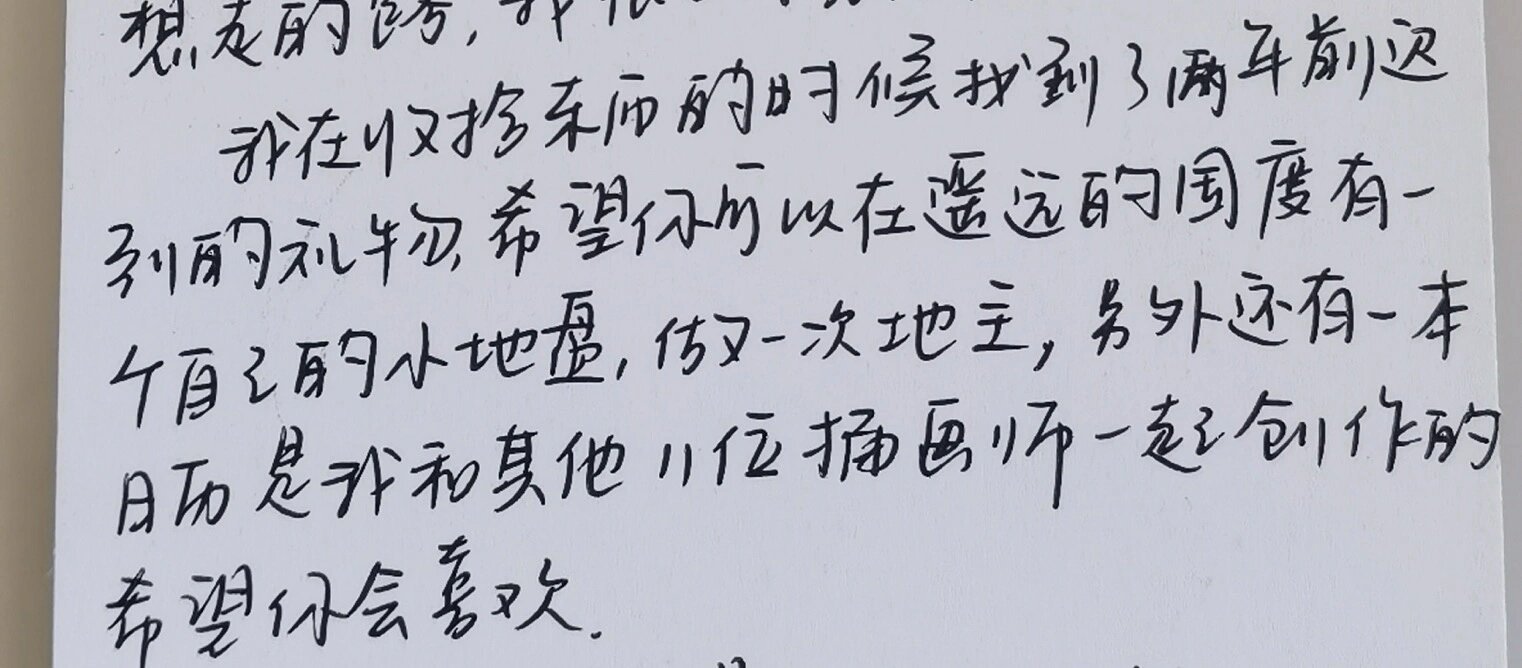 想走的路,我很
我在收拾东西的时候找到了两年前迟
到的礼物,希望你可以在遥远的国度有一
个自己的小地盘,做一次地主,另外还有一本
日历是我和其他11位插画师一起创作的
希望你会喜欢.